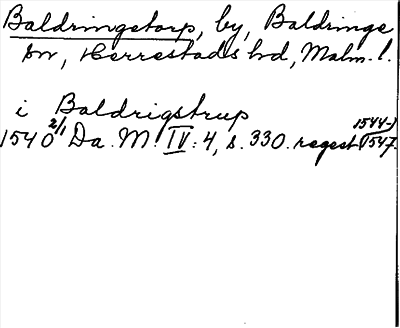 Baldringetorp, by, Baldringe
sn, Herrestads hd, Malm. l.
i Baldrigstrup
1540 2/1 Da. M. IV: 4, s. 330. regest (1544-)1547.